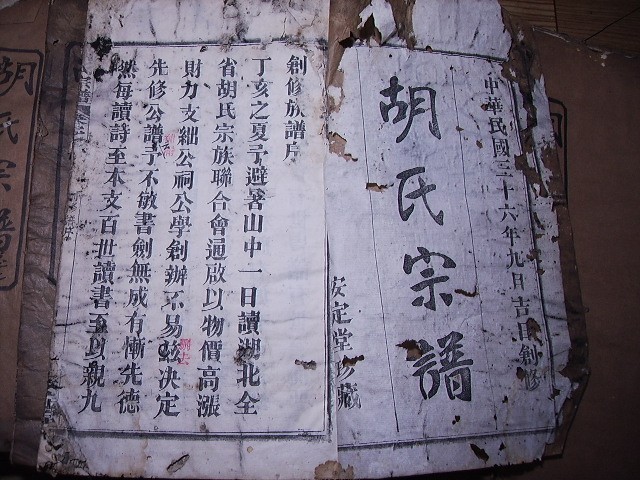 中華民國三十六年九月吉日創修
胡氏宗譜
安定堂珍藏
創修族譜序
丁亥之夏予避暑山中一日讀湖北全
省胡氏宗族聯合會通啟以物價高漲
財力支絀公祠公學創辦不易茲決定
先修公譜予不敏書劍無成有慚先德
然每讀詩至本支百世讀書至以親九
刪去
胡氏宗譜